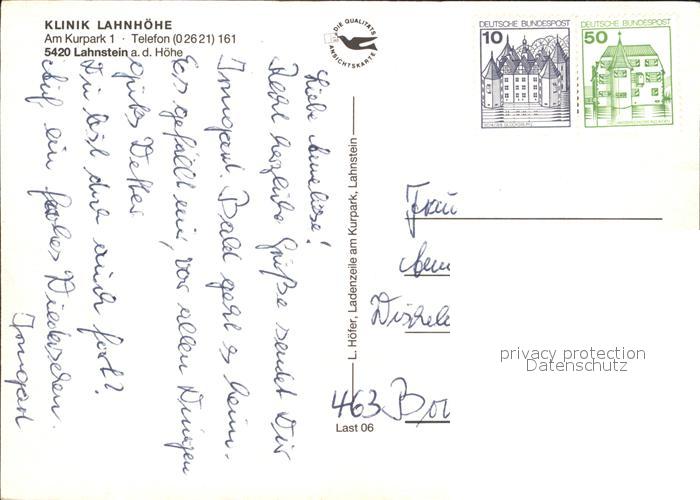 KLINIK LAHNHÖHE
Am Kurpark 1 · Telefon (0 26 21) 161
5420 Lahnstein a. d. Höhe
DIE QUALITÄTS
ANSICHTSKARTE
DEUTSCHE BUNDESPOST
10
SCHLOSS GLÜCKSBURG
DEUTSCHE BUNDESPOST
50
Liebe Anneliese!
Recht herzliche Grüße sendet Dir
Irmgard. Bald geht es heim.
Es gefällt mir, vor allen Dingen
gutes Wetter
Du bist doch auch fort?
Auf ein frohes Wiedersehen.
Irmgard
L. Höfer, Ladenzeile am Kurpark, Lahnstein
Last 06
Frau
463 Bo
privacy protection
Datenschutz